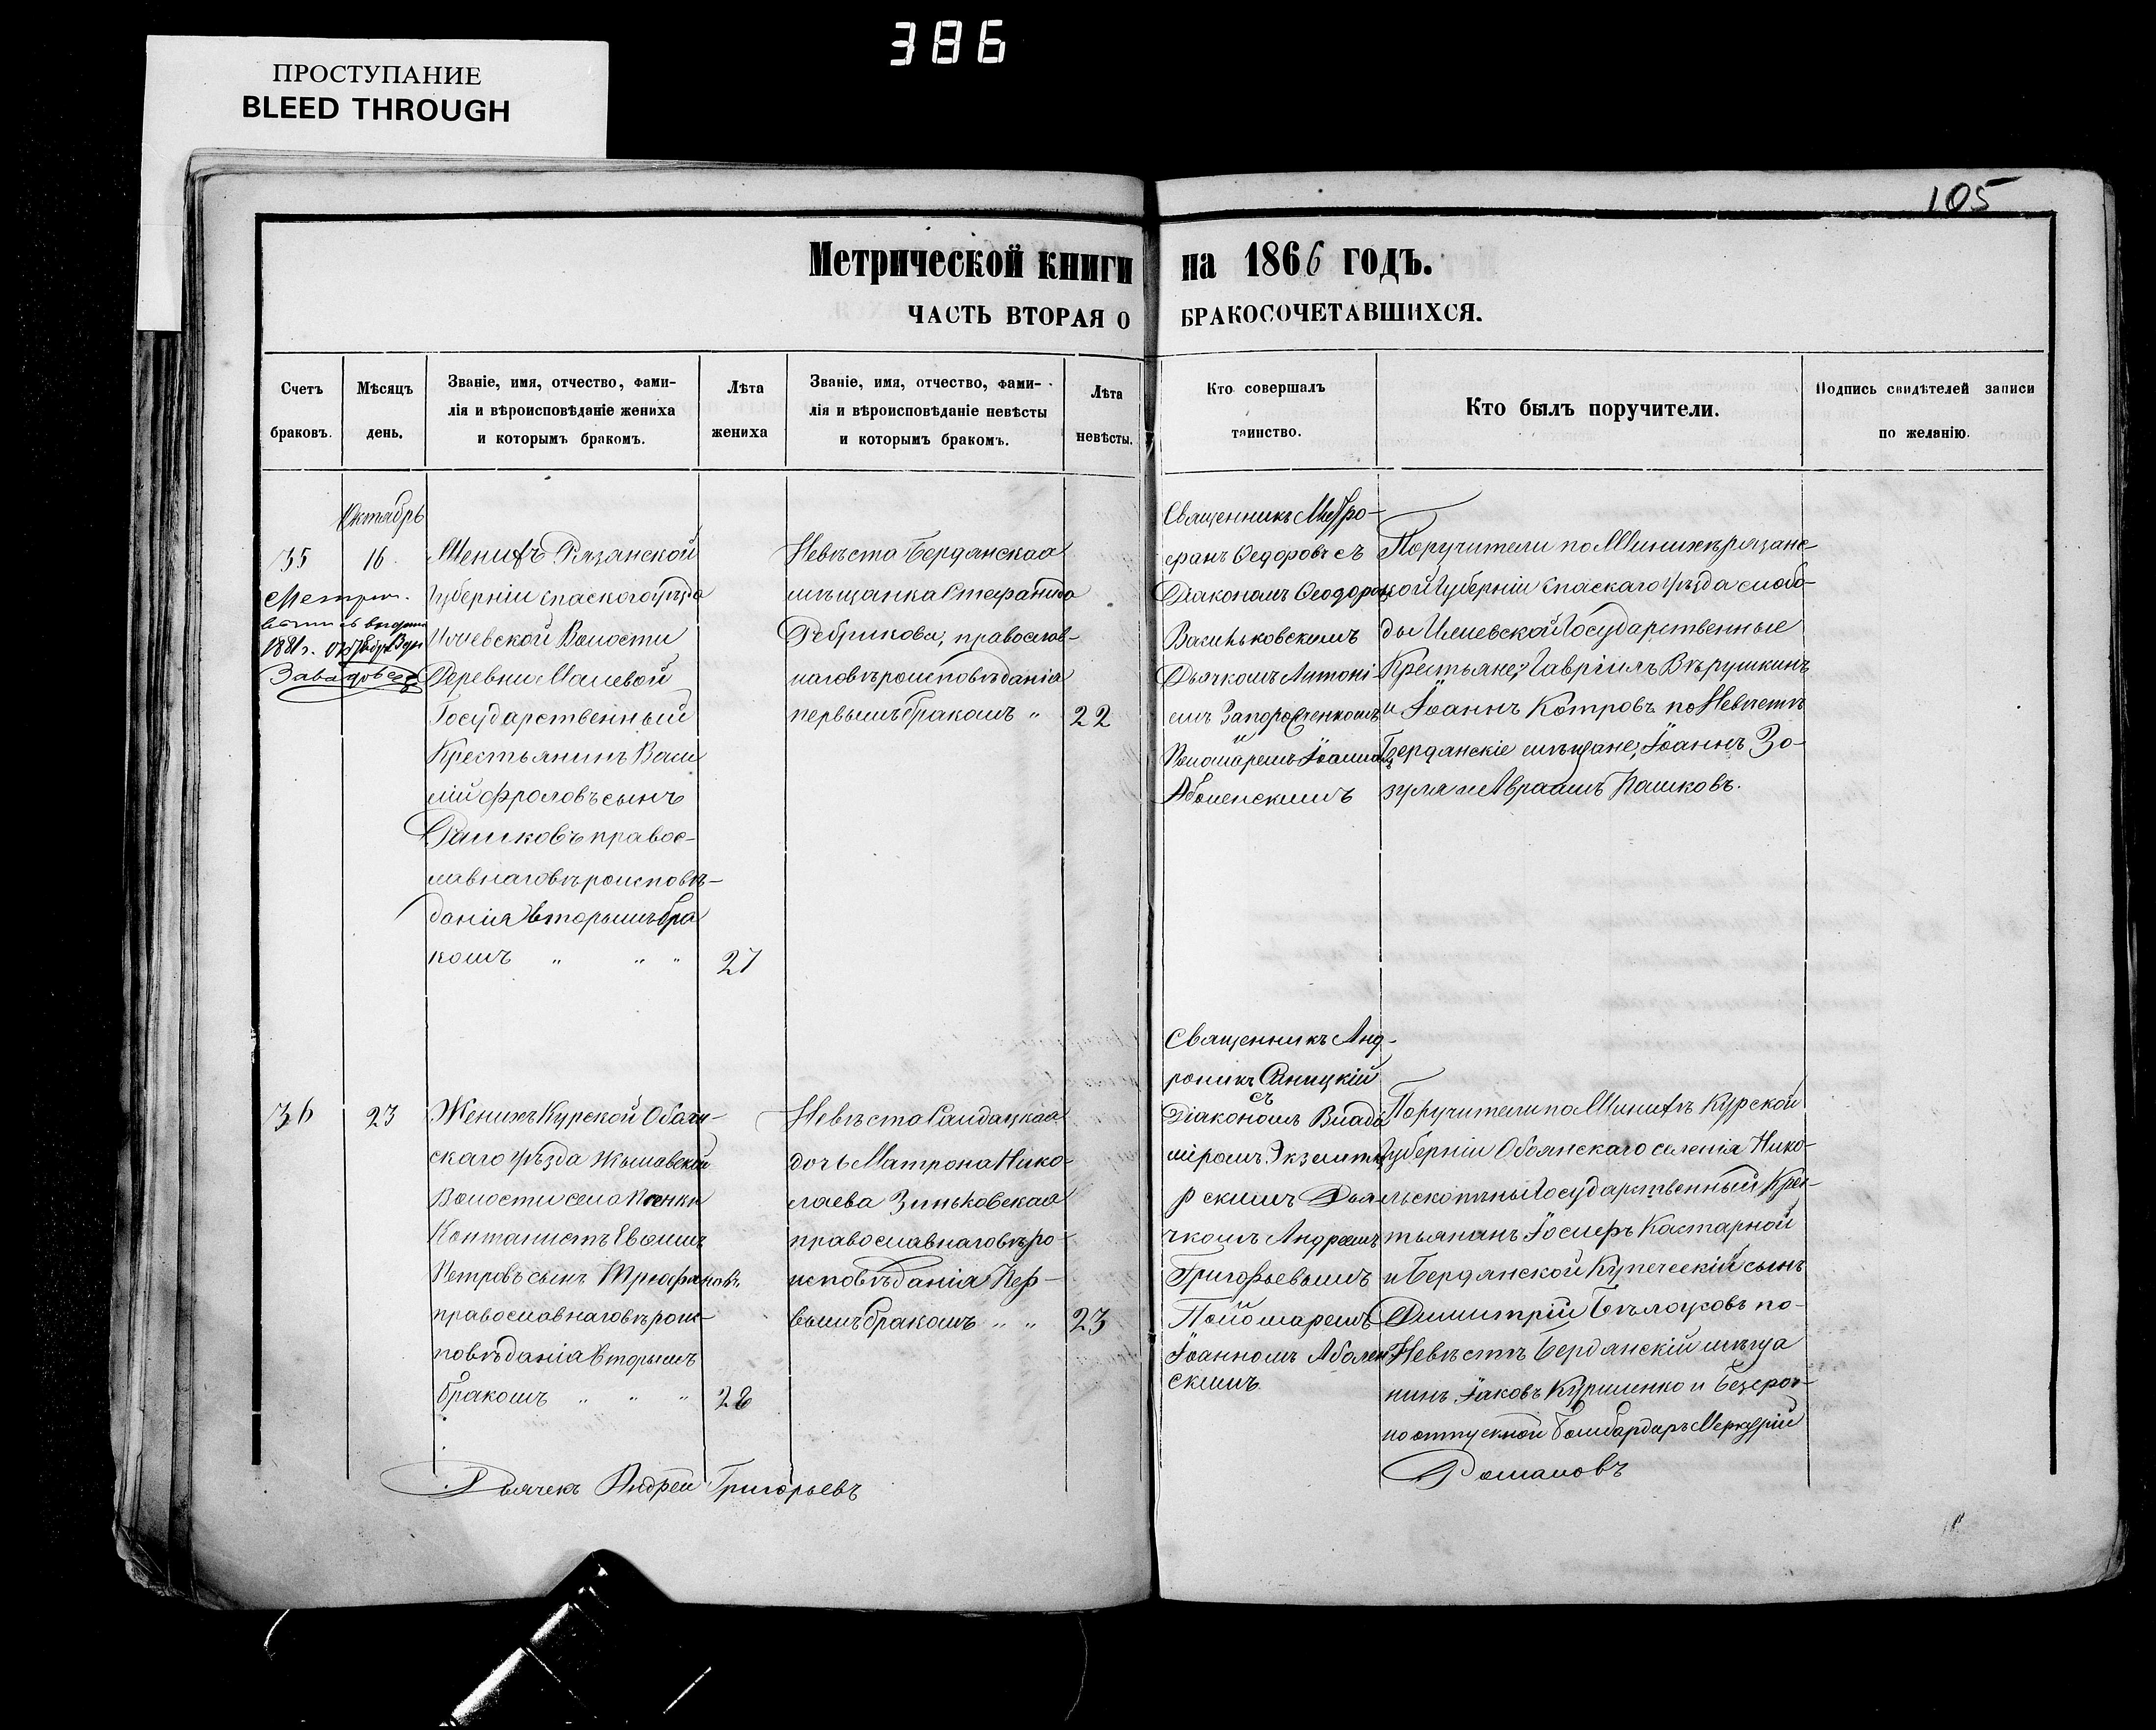 386
ПРОСТУПАНИЕ
BLEED THROUGH
105
Метрической книги на 1866 годъ.
ЧАСТЬ ВТОРАЯ О БРАКОСОЧЕТАВШИХСЯ.
Счетъ браковъ.
Мѣсяцъ день.
Званіе, имя, отчество, фами-
лія и вѣроисповѣданіе жениха
и которымъ бракомъ.
Лѣта
жениха
Званіе, имя, отчество, фами-
лія и вѣроисповѣданіе невѣсты
и которымъ бракомъ.
Лѣта
невѣсты.
Кто совершалъ
таинство.
Кто былъ поручители.
Подпись свидѣтелей записи
по желанію.
Октябрь
35
16.
Метрич.
1881 г.
Завадовск
Женихъ Рязанской
Губерніи Спаского уѣзда
Волости
Деревни
Государственный
Крестьянинъ Васи
лій Фроловъ сынъ
правос-
лавнаго вѣроисповѣ-
данія вторымъ бра
комъ " " "
27
Невѣста Бердянская
мѣщанка Стефанида
Ребрикова, православ-
наго вѣроисповѣданія
первымъ бракомъ "
22
Священникъ Митро-
фанъ Федоровъ съ
Діакономъ Феодоромъ
Васильковскимъ
Дьячкомъ Антоні-
емъ
и
Пономаремъ Іоанномъ
Аболенскимъ
Поручители по Женихѣ рязанс-
кой Губерніи Спаскаго уѣзда слобо-
ды Государственные
Крестьяне, Гавріилъ Вѣрушкинъ
и Іоаннъ Котровъ по Невѣстѣ
Бердянскіе мѣщане, Іоаннъ Зо-
зуля и Авраамъ Пашковъ.
36
23
Женихъ Курской Обоян-
скаго уѣзда
Волости село Пенки
Кантанистъ
Петровъ сынъ
православнаго вѣроис-
повѣданія вторымъ
бракомъ " " "
Невѣста Солдацкая
дочь Матрона Нико-
лаева Зиньковская
православнаго вѣро-
исповѣданія Пер-
вымъ бракомъ " "
23
Священникъ Анд-
роникъ Синицкій
съ
Діакономъ Влади
міромъ
рскимъ Дья-
чкомъ Андреемъ
Григорьевымъ
и
Пономаремъ
Іоанномъ Аболен
скимъ
Поручители по Женихѣ Курской
Губерніи Обоянскаго селенія Нико-
Государственный Крес-
тьянинъ Іосифъ Кастарной
и Бердянской Купеческій сынъ
Димитрій по
Невѣстѣ Бердянскій мѣща
нинъ Іаковъ и Безсроч-
но отпускной Бомбардиръ Меркурій
Романовъ
Дьячекъ Андрей Григорьевъ